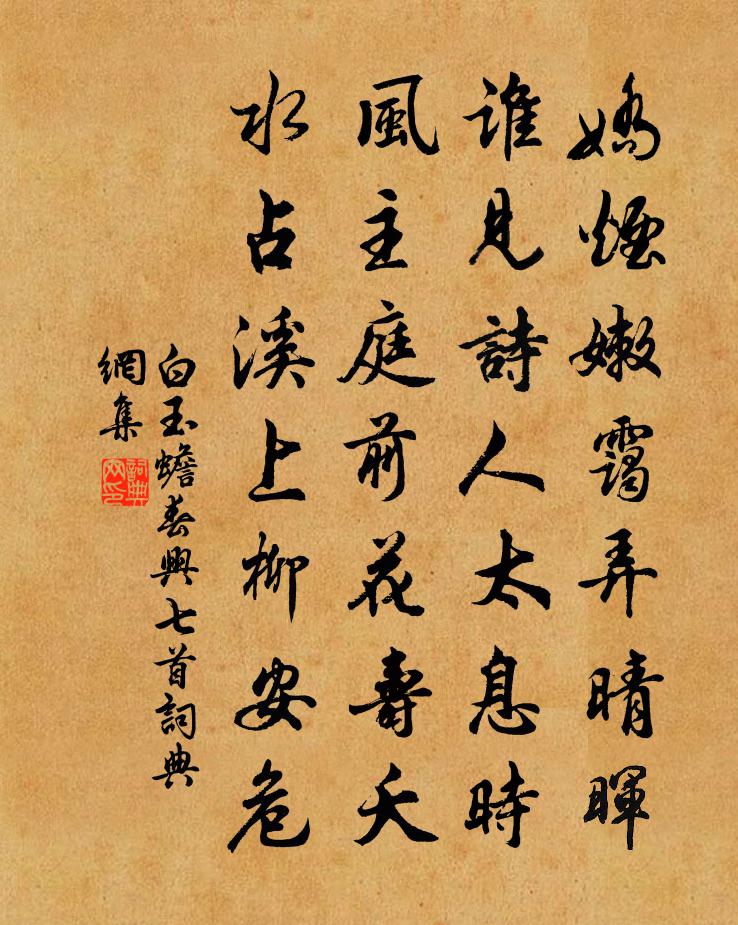 嬌煙嫩靄弄晴暉
誰見詩人太息時
風主庭前花壽夭
水占溪上柳安危
白玉蟾春興七首詞典
網集
詞典
网印